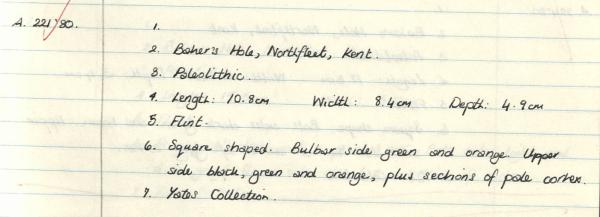 A. 221/80.
1.
2. Baker's Hole, Northfleet, Kent.
3. Paleolithic.
4. Length: 10.8cm Width: 8.4cm Depth: 4.9cm
5. Flint.
6. Square shaped. Bulbar side green and orange. Upper
side black, green and orange, plus sections of pale cortex.
7. Yates Collection.